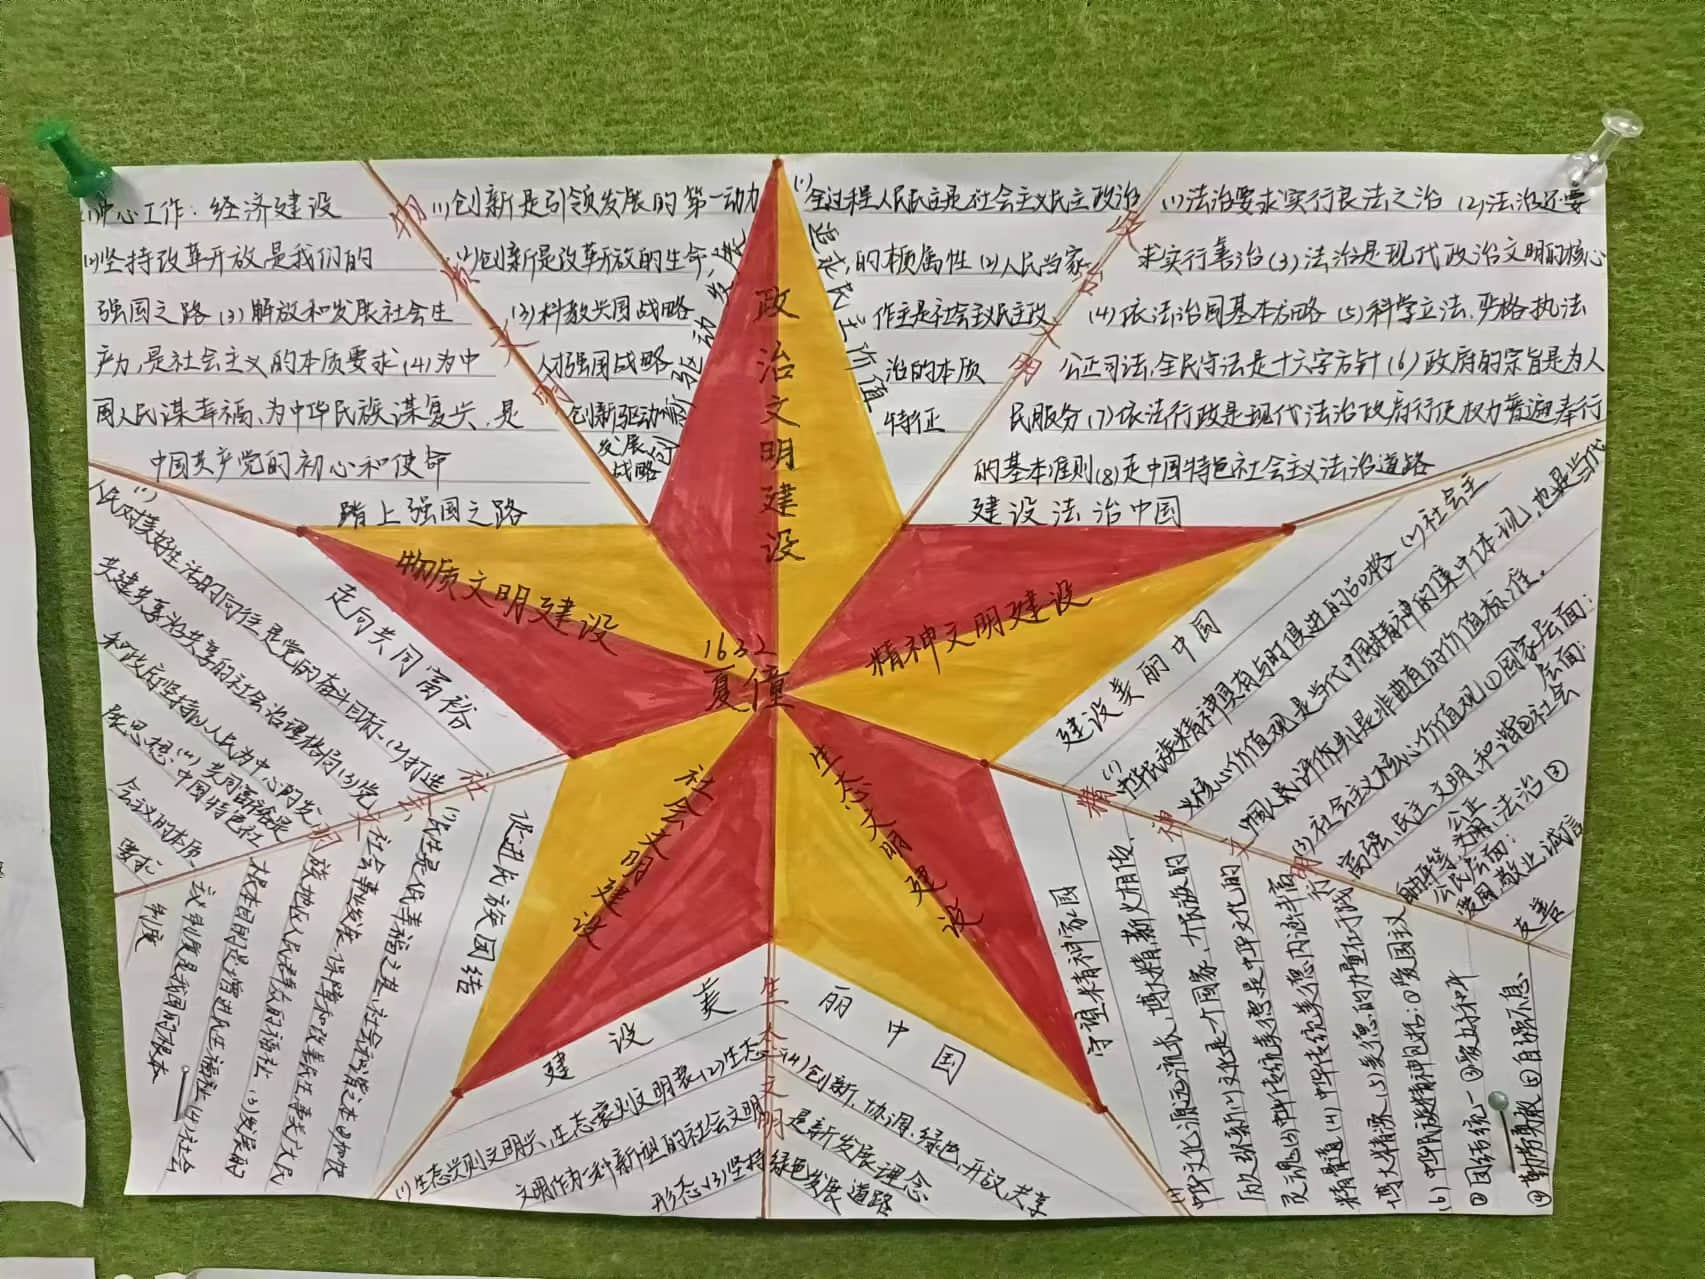 (1)中心工作：经济建设
(2)坚持改革开放是我们的
强国之路(3)解放和发展社会生
产力，是社会主义的本质要求(4)为中
国人民谋幸福、为中华民族谋复兴，是
中国共产党的初心和使命
踏上强国之路
(1)创新是引领发展的第一动力
(2)创新是改革开放的生命
(3)科教兴国战略
人才强国战略
创新驱动
发展
战略
(1)全过程人民民主是社会主义民主政治
的本质属性(2)人民当家
作主是社会主义民主政
治的本质
特征
追求民主价值
(1)法治要求实行良法之治 (2)法治还要
求实行善治(3)法治是现代政治文明的核心
(4)依法治国基本方略(5)科学立法、严格执法
公正司法、全民守法是十六字方针(6)政府的宗旨是为人
民服务(7)依法行政是现代法治政府行使权力普遍奉行
的基本准则(8)走中国特色社会主义法治道路
建设法治中国
政治文明建设
物质文明建设
精神文明建设
社会文明建设
生态文明建设
1632
夏僮
走向共同富裕
(1)
人民对美好生活的向往是党的奋斗目标、(2)打造
共建共享治共享的社会治理格局(3)党
和政府坚持以人民为中心的发
展思想：(4)共同富裕是
中国特色社
会主义的本质
要求
促进民族团结
(1)民生是人民幸福之基、社会和谐之本
社会事业发展，保障和改善民生
族地区人民群众的福祉 (3)发展的
根本目的是增进民生福祉(4)社会
制度
建设美丽中国
(1)中华民族精神具有与时俱进的品格 (2)社会主
义核心价值观是当代中国精神的集中体现，也是当代
中国人民评价判是非曲直的价值标准。
(3)社会主义核心价值观①国家层面：
富强、民主、文明、和谐②社会
层面：
自由平等 公正
法治③
公民层面：
爱国 敬业 诚信
友善
守望精神家园
(1)中华文化源远流长、博大精深、薪火相传、
历久弥新(2)文化是一个国家、一个民族的
灵魂(3)中华传统美德是中华文化的
精髓(4)中华传统美德内涵丰富
博大精深(5)美德的力量在于践行
(6)中华民族精神包括：①爱国主义
②团结统一 ③爱好和平
④勤劳勇敢 ⑤自强不息
建设美丽中国
(1)生态兴则文明兴、生态衰则文明衰(2)生态
文明作为一种新型的社会文明
形态(3)坚持绿色发展道路
(4)创新、协调、绿色、开放、共享
是新发展理念
物质文明
政治文明
精神文明
生态文明